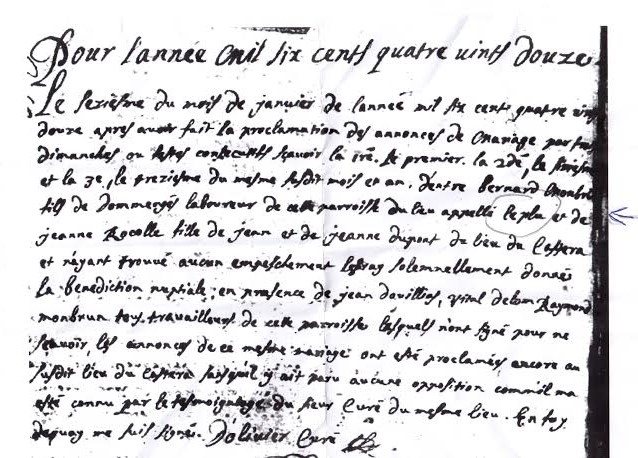 Pour l'année mil six cents quatre uints douze
Le seziesme du mois de januier de l'année mil six cent quatre uins
douze apres auoir fait la proclamation des annonces de mariage par trois
dimanches ou festes consecutifs scauoir la 1re. le premier. la 2de, le
et la 3e, le trezieme du mesme susdit mois et an. d'entre bernard
fils de dommenges laboureur de cette parroisse du lieu appellé le plu et de
jeanne Rocolle fille de jean et de jeanne dupont du lieu du
et n'ayant trouué aucun empeschement solemnellement donné
la benediction nuptiale, en presence de jean douillios, uital delom Raymond
monbrun tous trauailleurs de cette parroisse lesquels n'ont signé pour ne
scauoir, les annonces de ce mesme mariage ont esté proclamées encore au
susdit lieu du sans qu'il y ait paru aucune opposition comm'il ma
esté connu par le tesmoignage du sieur Curé du mesme lieu. En foy
dequoy me suis signé. Doliuier Curé